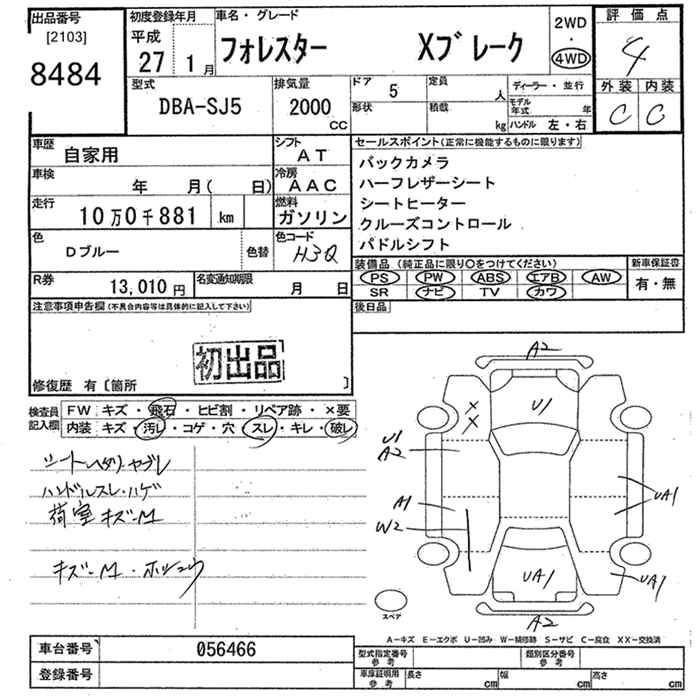 出品番号
[2103]
8484
初度登録年月
平成
27 1月
車名・グレード
フォレスター Xブレーク
2WD
・
4WD
評価点
4
外装 内装
C C
型式
DBA-SJ5
排気量
2000
CC
ドア 5
形状
定員 人
積載 kg
ディーラー・並行
モデル年式 年
ハンドル 左・右
車歴
自家用
シフト
AT
車検
年 月( 日)
冷房
AAC
走行
10万0千881 km
燃料
ガソリン
色
Dブルー
色替
色コード
H3Q
R券
13,010円
名変通知期限
月 日
セールスポイント(正常に機能するものに限ります)
バックカメラ
ハーフレザーシート
シートヒーター
クルーズコントロール
パドルシフト
装備品(純正品に限り○をつけてください)
新車保証書
PS PW ABS エアB AW
SR ナビ TV カワ
有・無
後日品
注意事項申告欄(不具合内容等は具体的に記入して下さい)
初出品
修復歴 有〔箇所 〕
検査員記入欄
FW キズ・飛石・ヒビ割・リペア跡・×要
内装 キズ・汚レ・コゲ・穴・スレ・キレ・破レ
シートヘタリ・ヤブレ
ハンドルスレ・ハゲ
荷室キズ-M
キズ-M・
A2
U1
×
×
U1
A2
A1
W2
UA1
UA1
UA1
A2
スペア
A-キズ E-エクボ U-凹み W-補修跡 S-サビ C-腐食 XX-交換済
車台番号 056466
登録番号
型式指定番号
参考
類別区分番号
参考
車庫証明用
参考
長さ cm 幅 cm 高さ cm